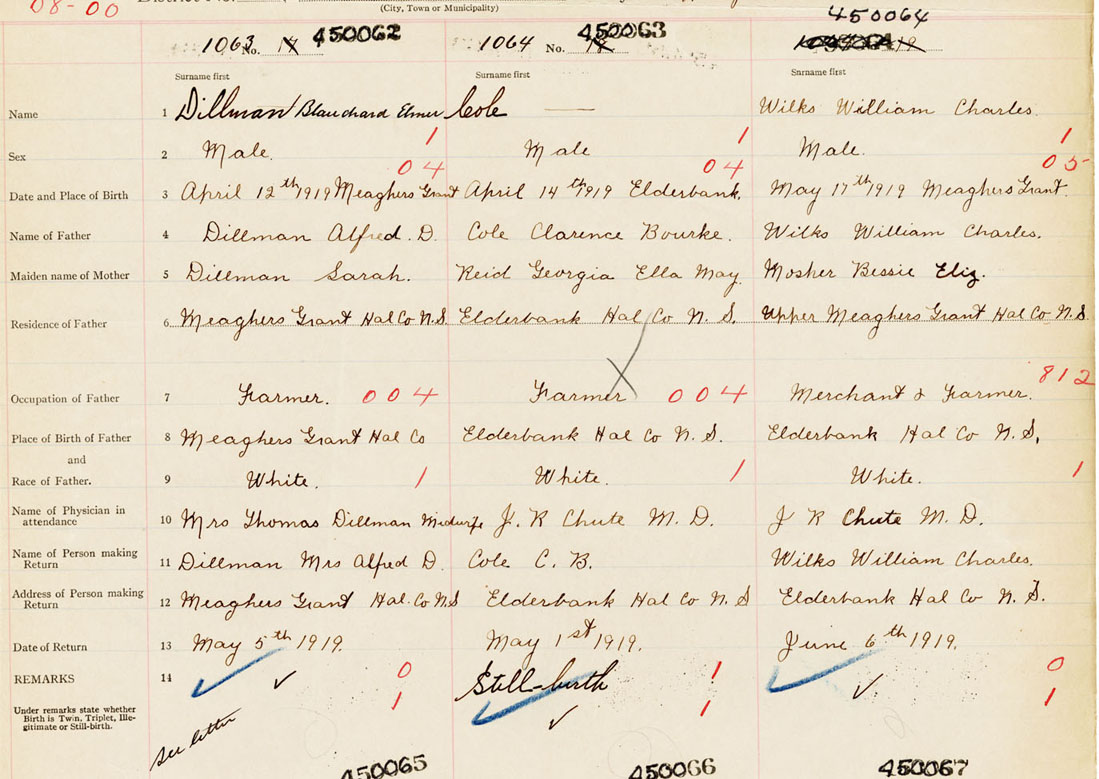 08-00
(City, Town or Municipality)
1063 No. 450062 1064 No. 450063 450064
Surname first Surname first Surname first
Name 1 Dillman Blanchard Elmer Cole — Wilks William Charles.
Sex 2 Male. 1 Male 1 Male. 1
04 04 05
Date and Place of Birth 3 April 12th 1919 Meaghers Grant April 14th 1919 Elderbank. May 17th 1919 Meaghers Grant.
Name of Father 4 Dillman Alfred. D. Cole Clarence Bourke. Wilks William Charles.
Maiden name of Mother 5 Dillman Sarah. Reid Georgia Ella May Mosher Bessie Eliz.
Residence of Father 6 Meaghers Grant Hal Co N.S. Elderbank Hal Co N. S. Upper Meaghers Grant Hal Co N.S.
812
Occupation of Father 7 Farmer. 004 Farmer 004 Merchant & Farmer.
Place of Birth of Father 8 Meaghers Grant Hal Co Elderbank Hal Co N. S. Elderbank Hal Co N. S.
and
Race of Father. 9 White. 1 White. 1 White. 1
Name of Physician in
attendance 10 Mrs Thomas Dillman Midwife J. R Chute M. D. J R Chute M. D.
Name of Person making
Return 11 Dillman Mrs Alfred D. Cole C. B. Wilks William Charles.
Address of Person making
Return 12 Meaghers Grant Hal. Co N.S Elderbank Hal Co N. S Elderbank Hal Co N. S.
Date of Return 13 May 5th 1919. May 1st 1919. June 6th 1919.
REMARKS 14 0 Still-birth 1 0
Under remarks state whether
Birth is Twin, Triplet, Ille-
gitimate or Still-birth. 1 1 1
See letter
450065 450066 450067